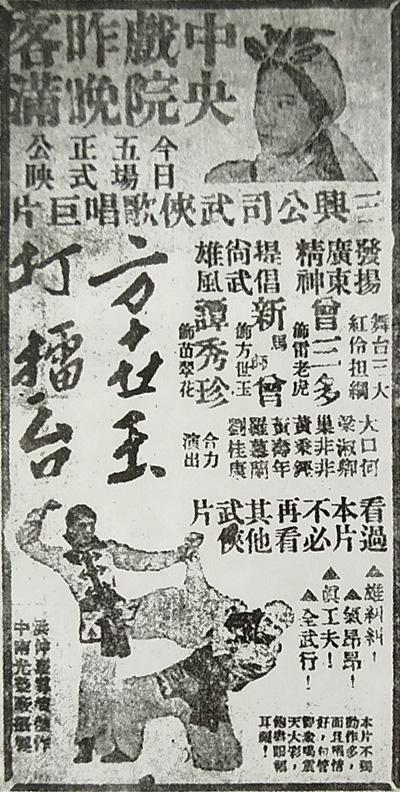 中央戲院昨晚客滿
今日五場正式公映
三興公司武俠歌唱巨片
發揚廣東精神
提倡尚武雄風
舞台三大紅伶担綱
曾三多
飾雷老虎
新馬師曾
飾方世玉
譚秀珍
飾苗翠花
方世玉
打擂台
大口何
梁淑卿
巢非非
黃秉鏗
黃壽年
羅慕蘭
劉桂康
合力演出
看過本片不必再看其他武俠片
▲雄糾糾!
▲氣昂昂!
▲眞工夫!
▲全武行!
本片不獨
動作多,
而且唱情
天大彩,
洪仲豪導演傑作